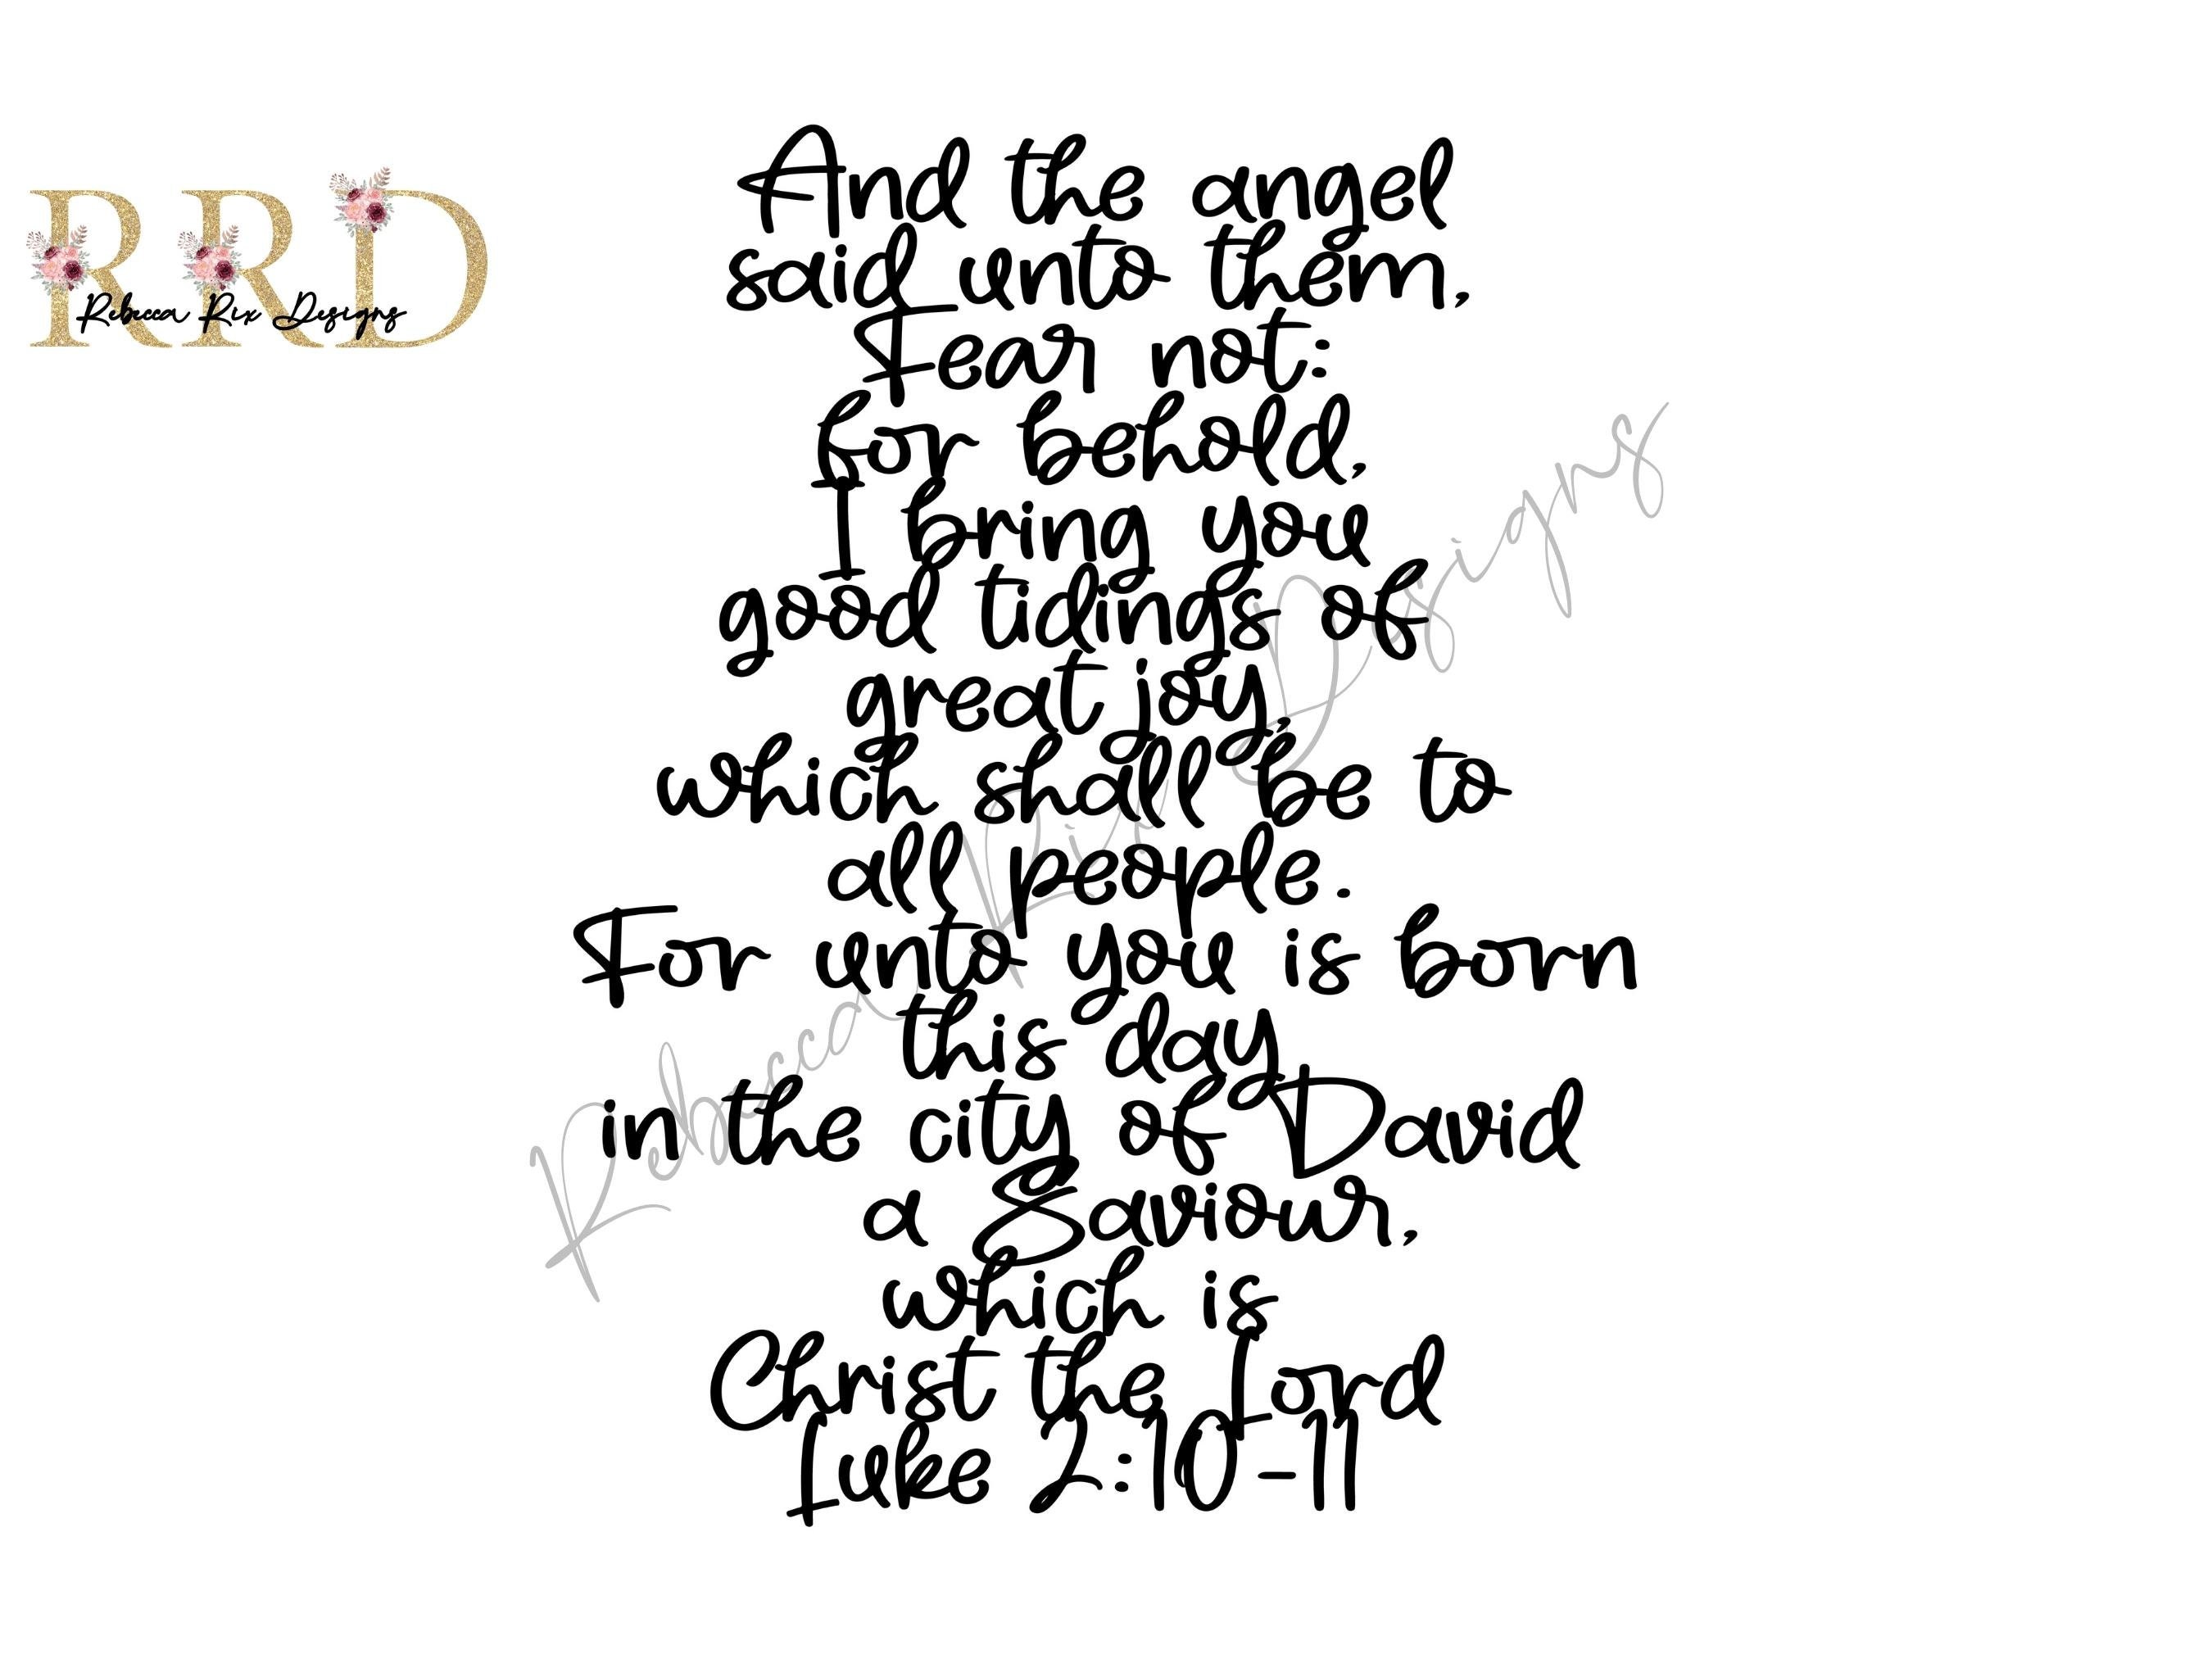 RRD
Rebecca Rix Designs
And the angel
said unto them,
Fear not:
for behold,
I bring you
good tidings of
great joy,
which shall be to
all people.
For unto you is born
this day
in the city of David
a Saviour,
which is
Christ the Lord
Luke 2:10-11
Rebecca Rix Designs